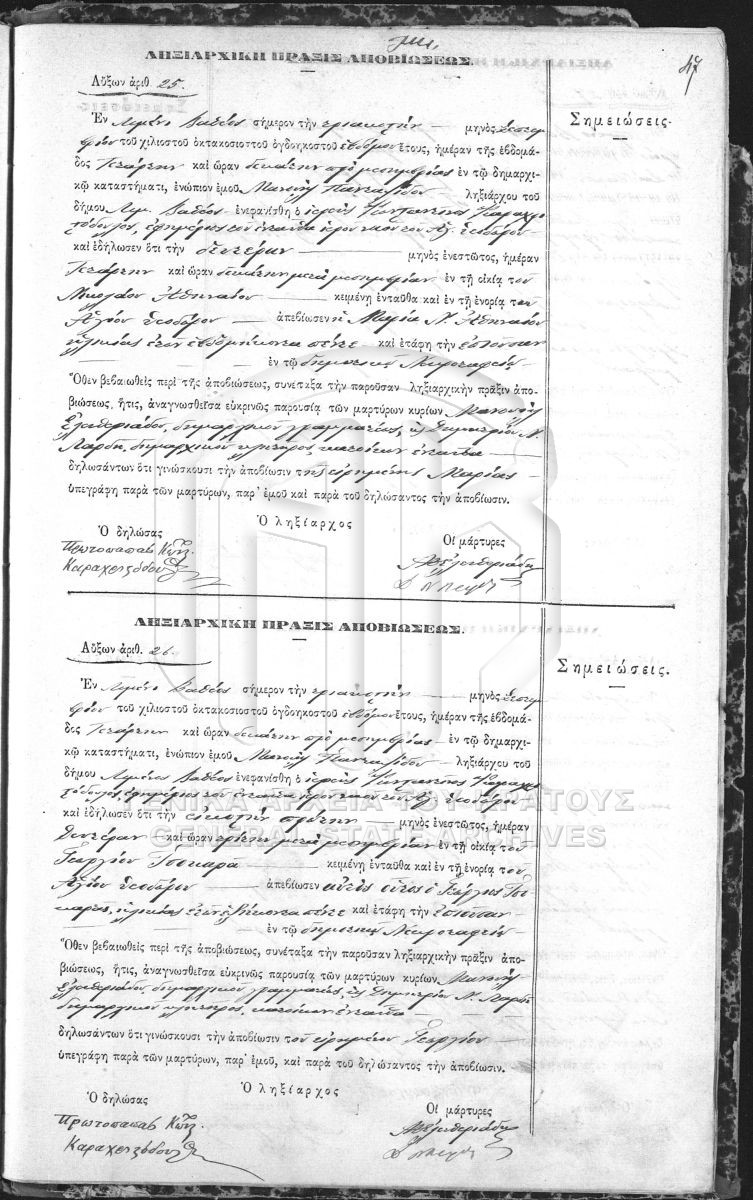 47
ΛΗΞΙΑΡΧΙΚΗ ΠΡΑΞΙΣ ΑΠΟΒΙΩΣΕΩΣ.
Αὔξων ἀριθ. 25.
Σημειώσεις.
Ἐν Λιμένι Βαθέος σήμερον τὴν τριακοστὴν μηνὸς Σεπτεμ-
βρίου τοῦ χιλιοστοῦ ὀκτακοσιοστοῦ ὀγδοηκοστοῦ ἑβδόμου ἔτους, ἡμέραν τῆς ἑβδομά-
δος Τετάρτην καὶ ὥραν δεκάτην πρὸ μεσημβρίας ἐν τῷ δημαρχι-
κῷ καταστήματι, ἐνώπιον ἐμοῦ Μανουὴλ Παντελίδου ληξιάρχου τοῦ
δήμου Λιμ. Βαθέος ἐνεφανίσθη ὁ ἱερεὺς Κωνσταντῖνος
ἐφημέριος τοῦ ἐνταῦθα ἱεροῦ ναοῦ τοῦ Ἁγ. Θεοδώρου
καὶ ἐδήλωσεν ὅτι τὴν δευτέραν μηνὸς ἐνεστῶτος, ἡμέραν
Τετάρτην καὶ ὥραν δεκάτην μετὰ μεσημβρίαν ἐν τῇ οἰκίᾳ τοῦ
Νικολάου Ἀθηναίου κειμένῃ ἐνταῦθα καὶ ἐν τῇ ἐνορίᾳ τοῦ
Ἁγίου Θεοδώρου ἀπεβίωσεν ἡ Μαρία Ν. Ἀθηναίου
ἡλικίας ἐτῶν ἑβδομήκοντα πέντε καὶ ἐτάφη τὴν ἐπιοῦσαν
ἐν τῷ δημοτικῷ Νεκροταφείῳ
Ὅθεν βεβαιωθεὶς περὶ τῆς ἀποβιώσεως, συνέταξα τὴν παροῦσαν ληξιαρχικὴν πρᾶξιν ἀπο-
βιώσεως, ἥτις, ἀναγνωσθεῖσα εὐκρινῶς παρουσίᾳ τῶν μαρτύρων κυρίων Μανουὴλ
Ἐλευθεριάδου, δημαρχικοῦ γραμματέως, κ Δημητρίου Ν.
δημαρχικοῦ κλητῆρος, κατοίκων ἐνταῦθα
δηλωσάντων ὅτι γινώσκουσι τὴν ἀποβίωσιν τῆς εἰρημένης Μαρίας
ὑπεγράφη παρὰ τῶν μαρτύρων, παρ' ἐμοῦ καὶ παρὰ τοῦ δηλώσαντος τὴν ἀποβίωσιν.
Ὁ ληξίαρχος
Ὁ δηλώσας
Οἱ μάρτυρες
Πρωτοπαπᾶς Κων.
Μ Ἐλευθεριάδης
ΛΗΞΙΑΡΧΙΚΗ ΠΡΑΞΙΣ ΑΠΟΒΙΩΣΕΩΣ.
Αὔξων ἀριθ. 26.
Σημειώσεις.
Ἐν Λιμένι Βαθέος σήμερον τὴν τριακοστὴν μηνὸς Σεπτεμ-
βρίου τοῦ χιλιοστοῦ ὀκτακοσιοστοῦ ὀγδοηκοστοῦ ἑβδόμου ἔτους, ἡμέραν τῆς ἑβδομά-
δος Τετάρτην καὶ ὥραν δεκάτην πρὸ μεσημβρίας ἐν τῷ δημαρχι-
κῷ καταστήματι, ἐνώπιον ἐμοῦ Μανουὴλ Παντελίδου ληξιάρχου τοῦ
δήμου Λιμένος Βαθέος ἐνεφανίσθη ὁ ἱερεὺς Κωνσταντῖνος
ἐφημέριος τοῦ ἐνταῦθα ἱεροῦ ναοῦ τοῦ Ἁγ. Θεοδώρου
ΓΕΝΙΚΑ ΑΡΧΕΙΑ ΤΟΥ ΚΡΑΤΟΥΣ
καὶ ἐδήλωσεν ὅτι τὴν εἰκοστὴν πρώτην μηνὸς ἐνεστῶτος, ἡμέραν
GENERAL STATE ARCHIVES
Δευτέραν καὶ ὥραν τρίτην μετὰ μεσημβρίαν ἐν τῇ οἰκίᾳ τοῦ
Γεωργίου Τσοκαρᾶ κειμένῃ ἐνταῦθα καὶ ἐν τῇ ἐνορίᾳ τοῦ
Ἁγίου Θεοδώρου ἀπεβίωσεν αὐτὸς οὗτος ὁ Γεώργιος Τσο-
καρᾶς, ἡλικίας ἐτῶν ἑξήκοντα πέντε καὶ ἐτάφη τὴν ἐπιοῦσαν
ἐν τῷ δημοτικῷ Νεκροταφείῳ
Ὅθεν βεβαιωθεὶς περὶ τῆς ἀποβιώσεως, συνέταξα τὴν παροῦσαν ληξιαρχικὴν πρᾶξιν ἀπο-
βιώσεως, ἥτις, ἀναγνωσθεῖσα εὐκρινῶς παρουσίᾳ τῶν μαρτύρων κυρίων Μανουὴλ
Ἐλευθεριάδου, δημαρχικοῦ γραμματέως, κ Δημητρίου Ν.
δημαρχικοῦ κλητῆρος, κατοίκων ἐνταῦθα
δηλωσάντων ὅτι γινώσκουσι τὴν ἀποβίωσιν τοῦ εἰρημένου Γεωργίου
ὑπεγράφη παρὰ τῶν μαρτύρων, παρ' ἐμοῦ, καὶ παρὰ τοῦ δηλώσαντος τὴν ἀποβίωσιν.
Ὁ ληξίαρχος
Ὁ δηλώσας
Οἱ μάρτυρες
Πρωτοπαπᾶς Κων.
Μ Ἐλευθεριάδης